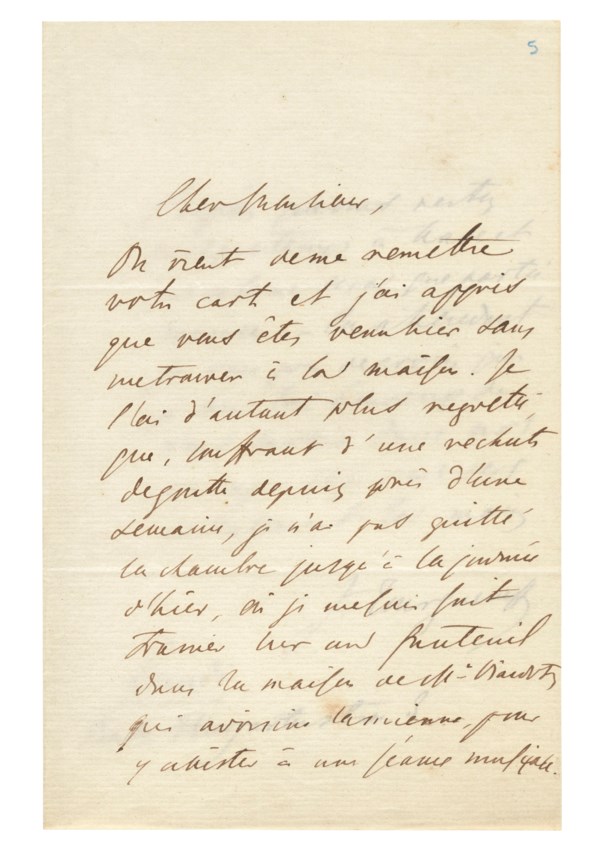 5
Cher Monsieur,
On vient de me remettre
votre carte et j'ai appris
que vous êtes venu hier sans
me trouver à la maison. Je
l'ai d'autant plus regretté,
que, souffrant d'une rechute
de goutte depuis près d'une
semaine, je n'ai pas quitté
la chambre jusqu'à la journée
d'hier, où je me suis fait
trainer sur un fauteuil
dans la maison de Mr Viardot,
qui avoisine la mienne, pour
y assister à une séance musicale.